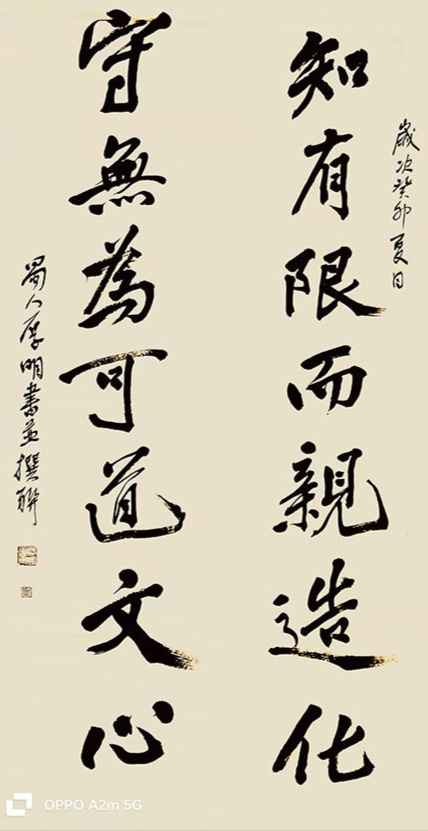 歲次癸卯夏日
知有限而親造化
守無為可道文心
蜀人厚明書並撰聯
OPPO A2m 5G